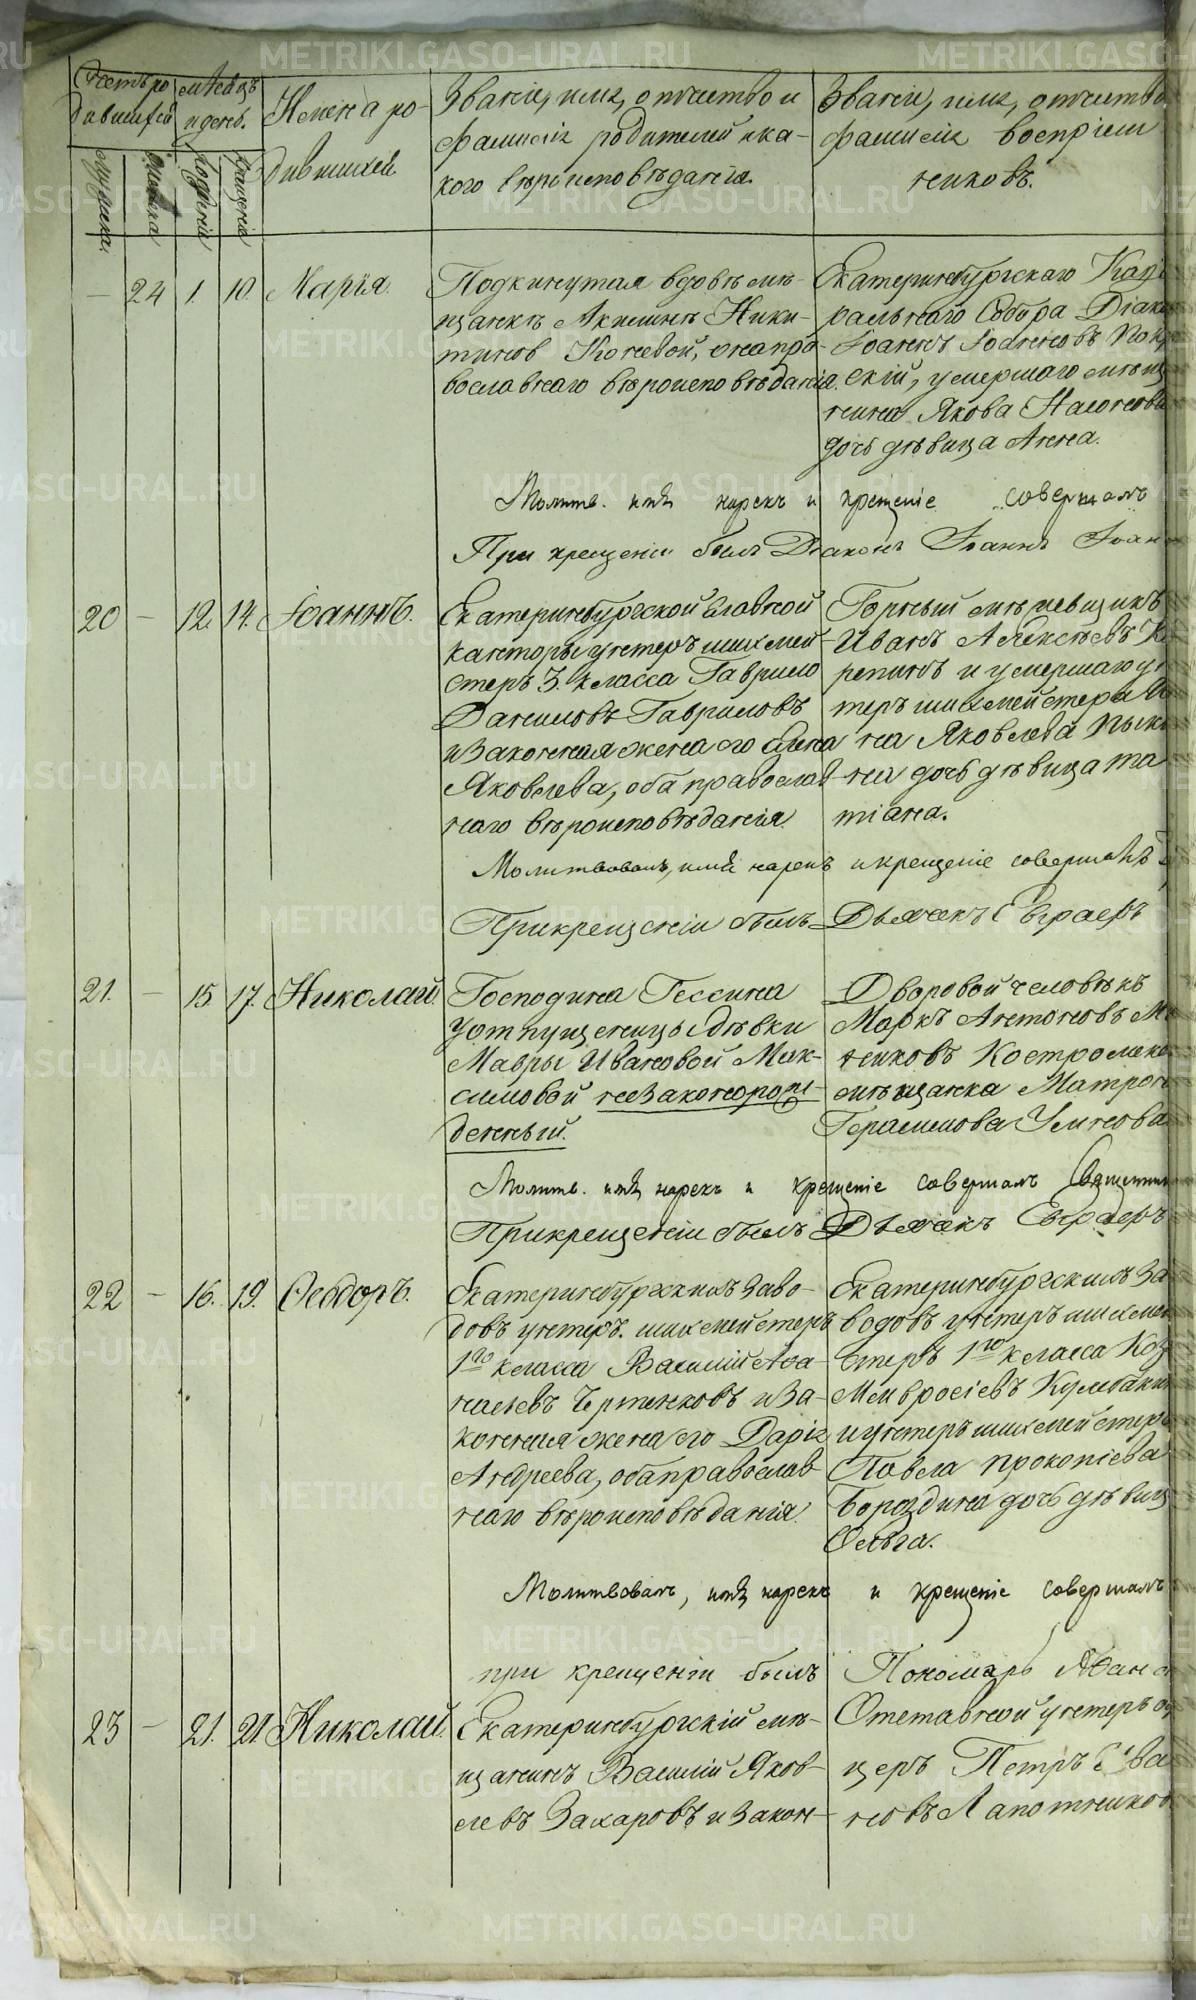 Счетъ ро
дившихся
мужеска
женска
мѣсяцъ
и день.
рожденія
крещенія
Имена ро-
дившихся
Званіе, имя, отчество и
фамилія родителей и ка-
кого вѣроисповѣданія.
Званіе, имя, отчество
фамилія воспріем
никовъ.
— 24 1. 10. Марія.
Подкинутая вдовѣ мѣ-
щанкѣ Акилинѣ Ники-
тиной Кочевой, она пра-
вославнаго вѣроисповѣданія.
Екатеринбургскаго
ральнаго Собора Діак
Іоаннъ Іоанновъ Пок
скій, умершаго мѣщ
нина Якова Насонова
дочь дѣвица Анна.
Молитв. имя нарекъ и крещеніе совершалъ
При крещеніи былъ Діаконъ Іоаннъ Іоан
20 — 12. 14. Іоаннъ.
Екатеринбургской главной
канторы унтеръ шихмей-
стеръ 3. класса Гаврило
Даниловъ Гавриловъ
и законная жена его Елена
Яковлева, оба православ-
наго вѣроисповѣданія.
Горный
Иванъ Алексѣевъ К
репинъ и умершаго ун
теръ шихмейстера И
на Яковлева Пык
на дочь дѣвица Та
тіана.
Молитвовалъ, имя нарекъ и крещеніе совершалъ
При крещеніи былъ Дьячекъ Евграфъ
21. — 15 17. Николай.
Господина Гессина
уотпущеницы дѣвки
Мавры Ивановой Мак-
симовой незаконорож-
денный.
Дворовой человѣкъ
Маркъ Антоновъ М
никовъ Костромска
мѣщанка Матрон
Герасимова Умнова
Молитв. имя нарекъ и крещеніе совершалъ Священник
При крещеніи былъ Дьячекъ Евграфъ
22 — 16. 19. Ѳеодоръ.
Екатеринбургскихъ заво-
довъ унтеръ. шихмейстеръ
1го класса Василій Аѳа-
насьевъ Чертенковъ и за-
конная жена его Дарія
Андреева, оба православ-
наго вѣроисповѣданія.
Екатеринбургскихъ за
водовъ унтеръ шихмей
стеръ 1го класса Коз
Амвросіевъ Кулебакин
и унтеръ шихмейстера
Павла Прокопіева
Бороздина дочь дѣвиц
Ольга.
Молитвовалъ, имя нарекъ и крещеніе совершалъ
при крещеніи былъ Пономарь Иван
23 — 21. 21 Николай.
Екатеринбургскій мѣ-
щанинъ Василій Яков-
левъ Захаровъ и закон-
Отставной унтеръ оф
церъ Петръ Ива
новъ Лапотников